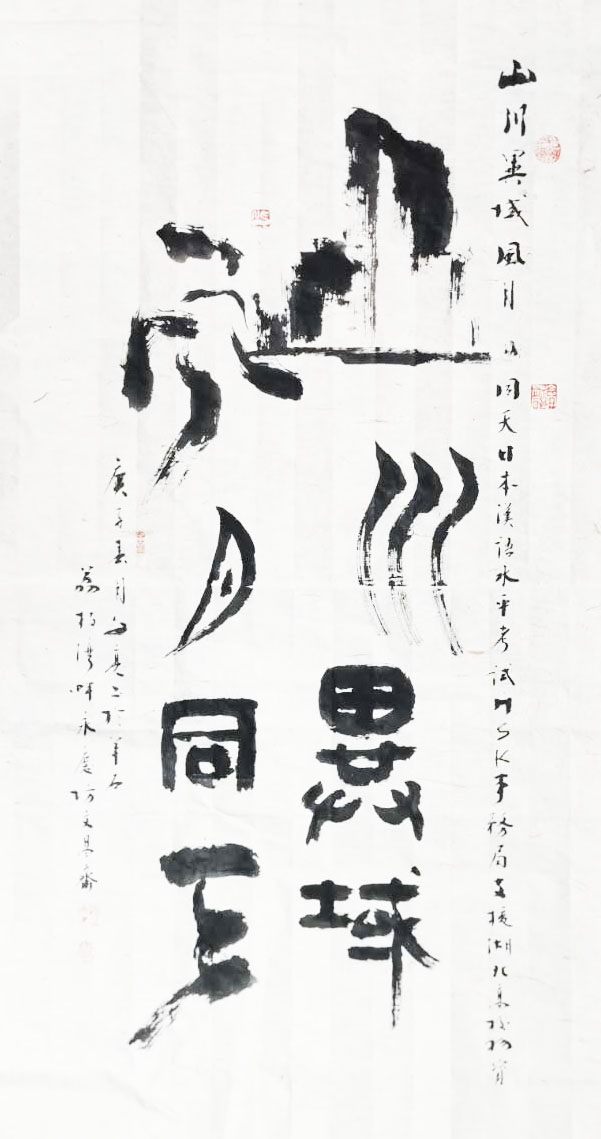 山川異域
風月同天
山川異域風月同天日本漢語水平考試HSK事務局支援湖北高校物資
庚子春月